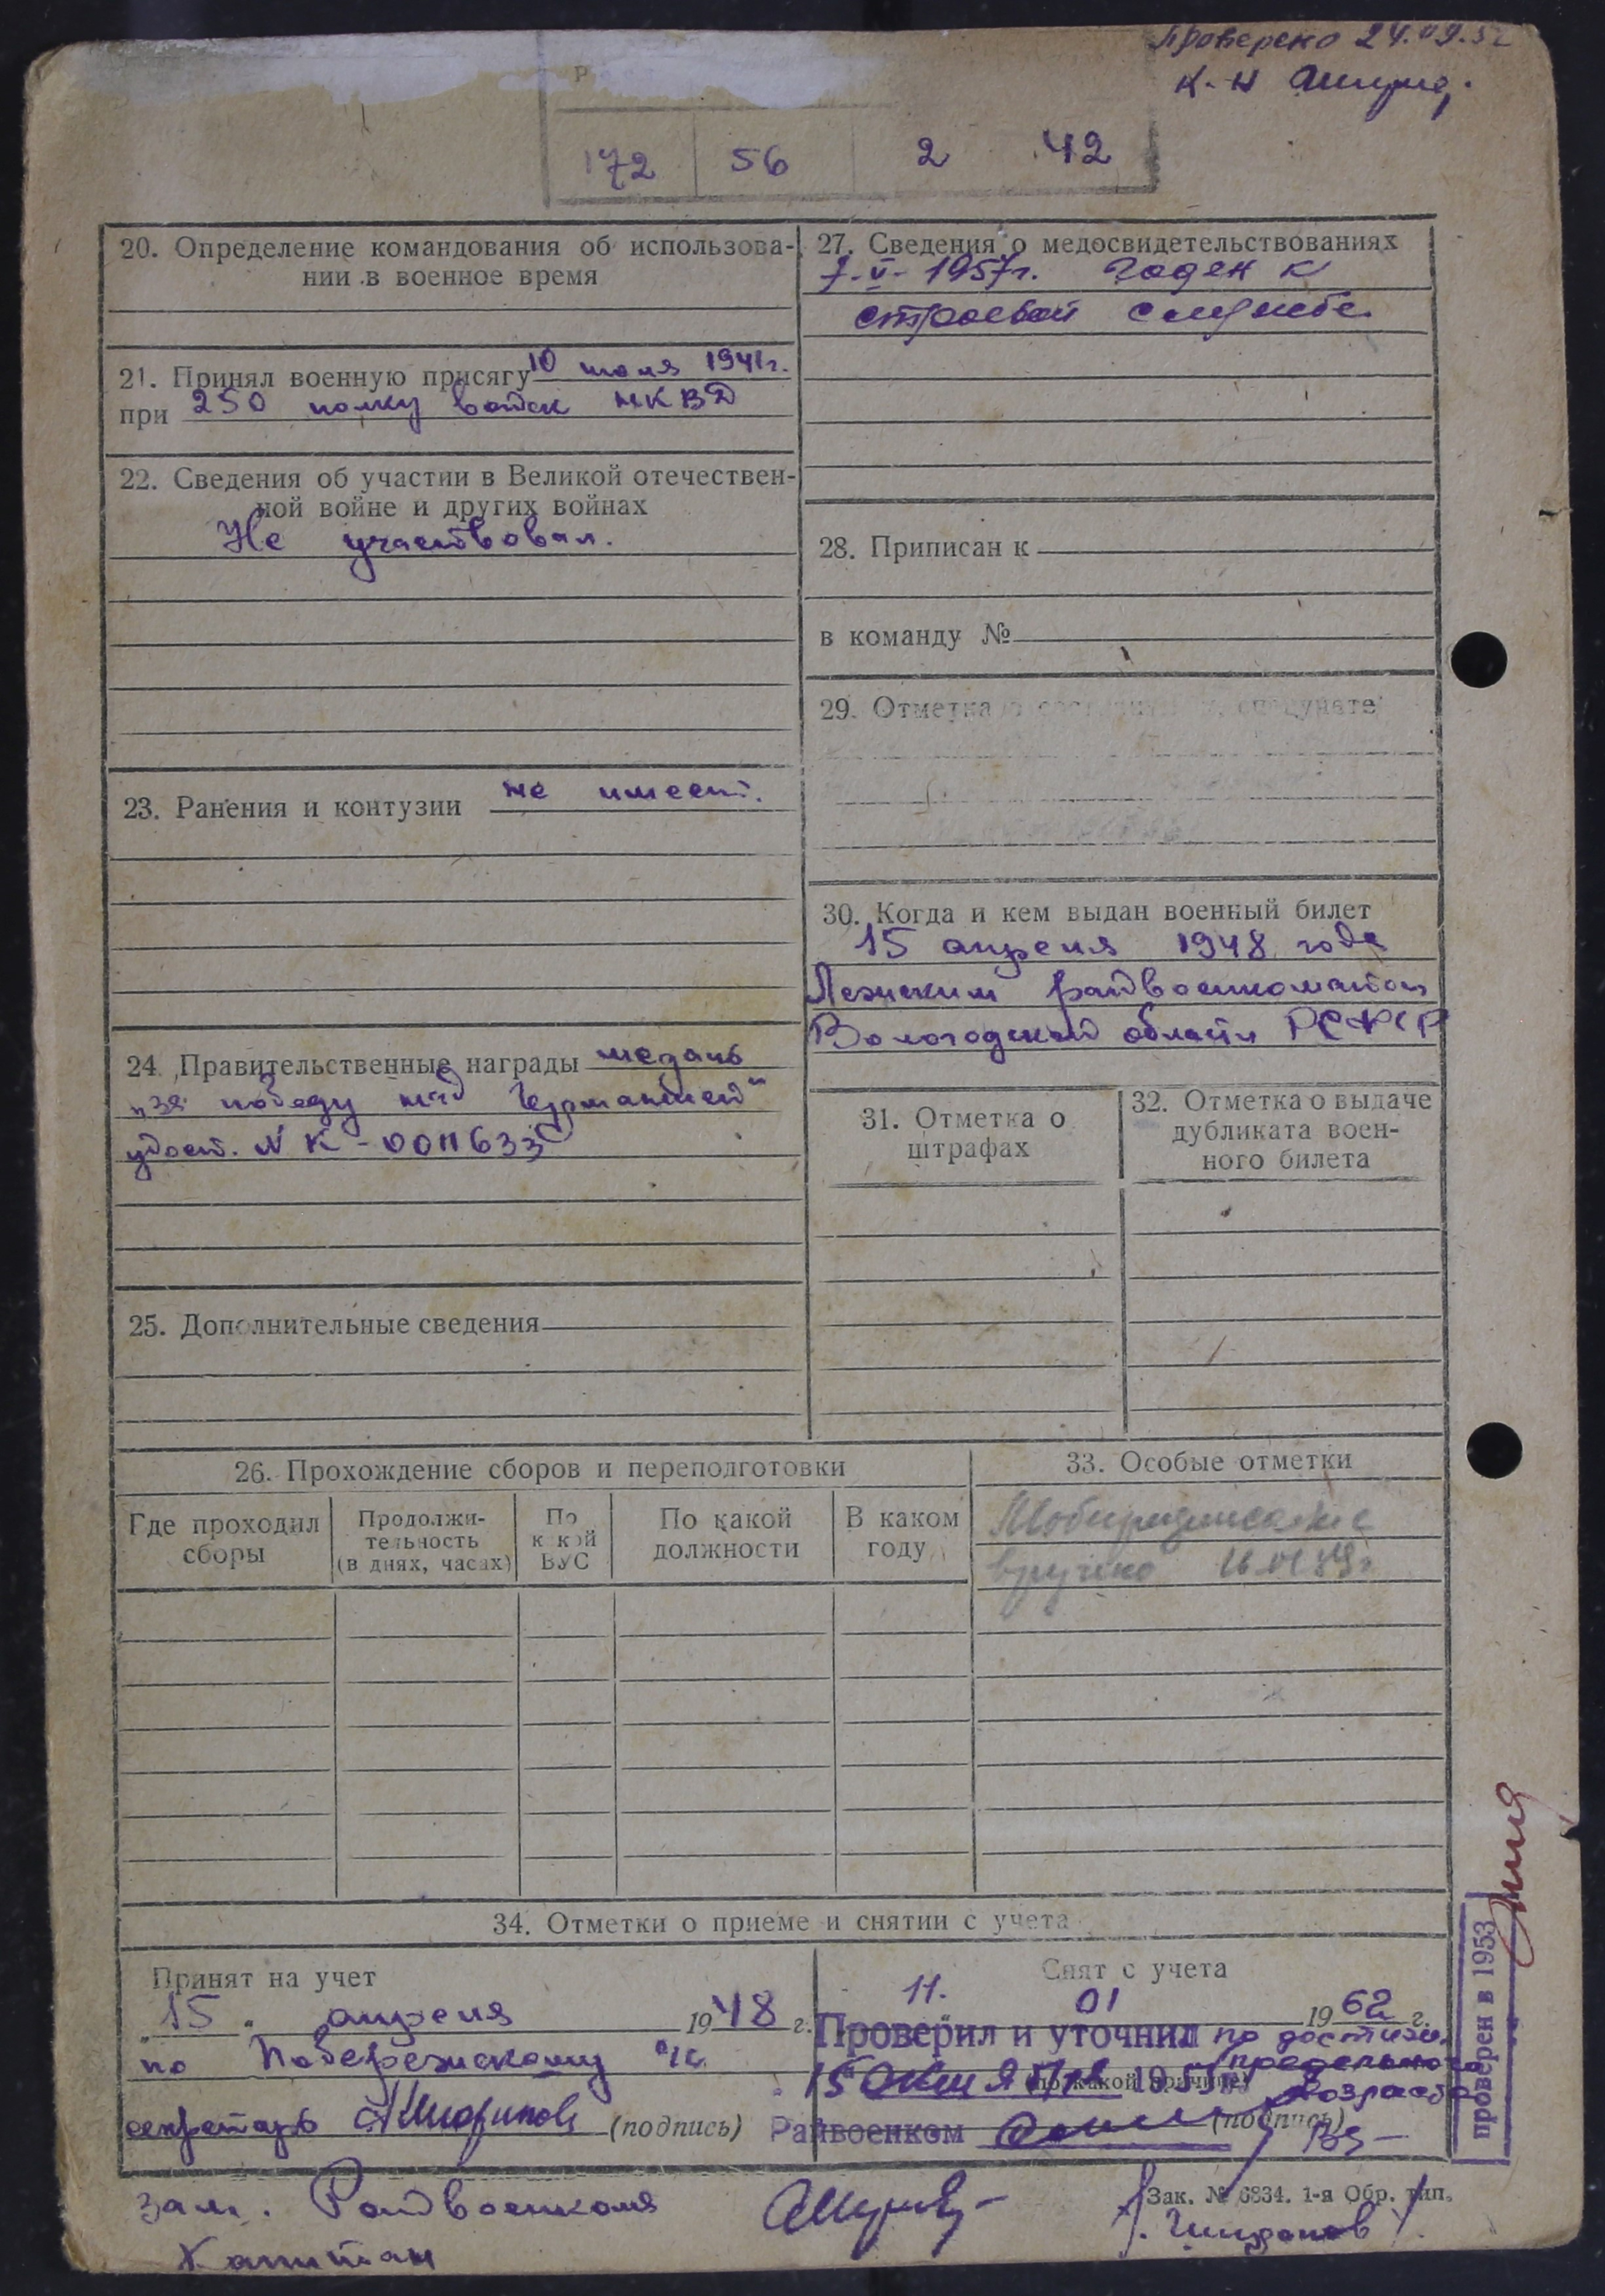 Проверено 24.09.52
к-н
172 56 2 42
20. Определение командования об использова-
нии в военное время
21. Принял военную присягу 10 июля 1941г.
при 250 полку войск НКВД
22. Сведения об участии в Великой отечествен-
ной войне и других войнах
Не участвовал.
23. Ранения и контузии не имеет.
24. Правительственные награды медаль
„за победу над Германией"
удост. № К-0011633
25. Дополнительные сведения
27. Сведения о медосвидетельствованиях
7-V-1957г. Годен к
строевой службе.
28. Приписан к
в команду №
29. Отметка о
30. Когда и кем выдан военный билет
15 апреля 1948 года
Лежским райвоенкоматом
Вологодской области РСФСР
31. Отметка о
штрафах
32. Отметка о выдаче
дубликата воен-
ного билета
26. Прохождение сборов и переподготовки
Где проходил
сборы
Продолжи-
тельность
(в днях, часах)
По
какой
ВУС
По какой
должности
В каком
году
33. Особые отметки
Мобпредписание
вручено
34. Отметки о приеме и снятии с учета
Принят на учет
„15„ апреля 1948 г.
по Побережскому
секретарь (подпись)
Снят с учета
11. 01 1962 г.
Проверил и уточнил по достиж.
предельного
15 октября 1955 возраста
Райвоенком (подпись)
проверен в 1953
Зам. Райвоенкома
Капитан
Зак. № 6834. 1-я Обр. тип.